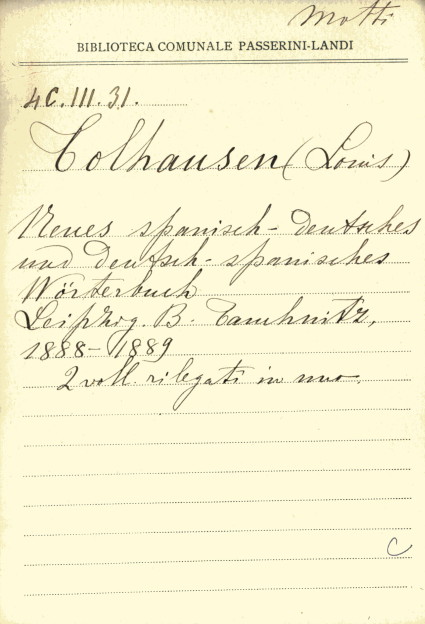 Motti
BIBLIOTECA COMUNALE PASSERINI-LANDI
4C.III.31.
Tolhausen (Louis)
Neues spanisch-deutsches
und deutsch-spanisches
Wörterbuch
Leipzig. B. Tauchnitz,
1888-1889
2 voll. rilegati in uno.
C